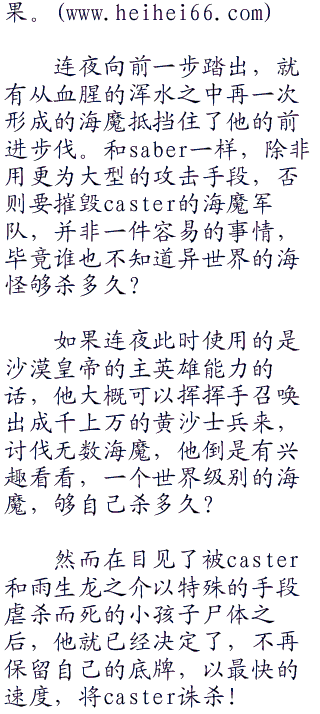 果。(www.heihei66.com)
连夜向前一步踏出，就
有从血腥的浑水之中再一次
形成的海魔抵挡住了他的前
进步伐。和saber一样，除非
用更为大型的攻击手段，否
则要摧毁caster的海魔军
队，并非一件容易的事情，
毕竟谁也不知道异世界的海
怪够杀多久？
如果连夜此时使用的是
沙漠皇帝的主英雄能力的
话，他大概可以挥挥手召唤
出成千上万的黄沙士兵来，
讨伐无数海魔，他倒是有兴
趣看看，一个世界级别的海
魔，够自己杀多久？
然而在目见了被caster
和雨生龙之介以特殊的手段
虐杀而死的小孩子尸体之
后，他就已经决定了，不再
保留自己的底牌，以最快的
速度，将caster诛杀！